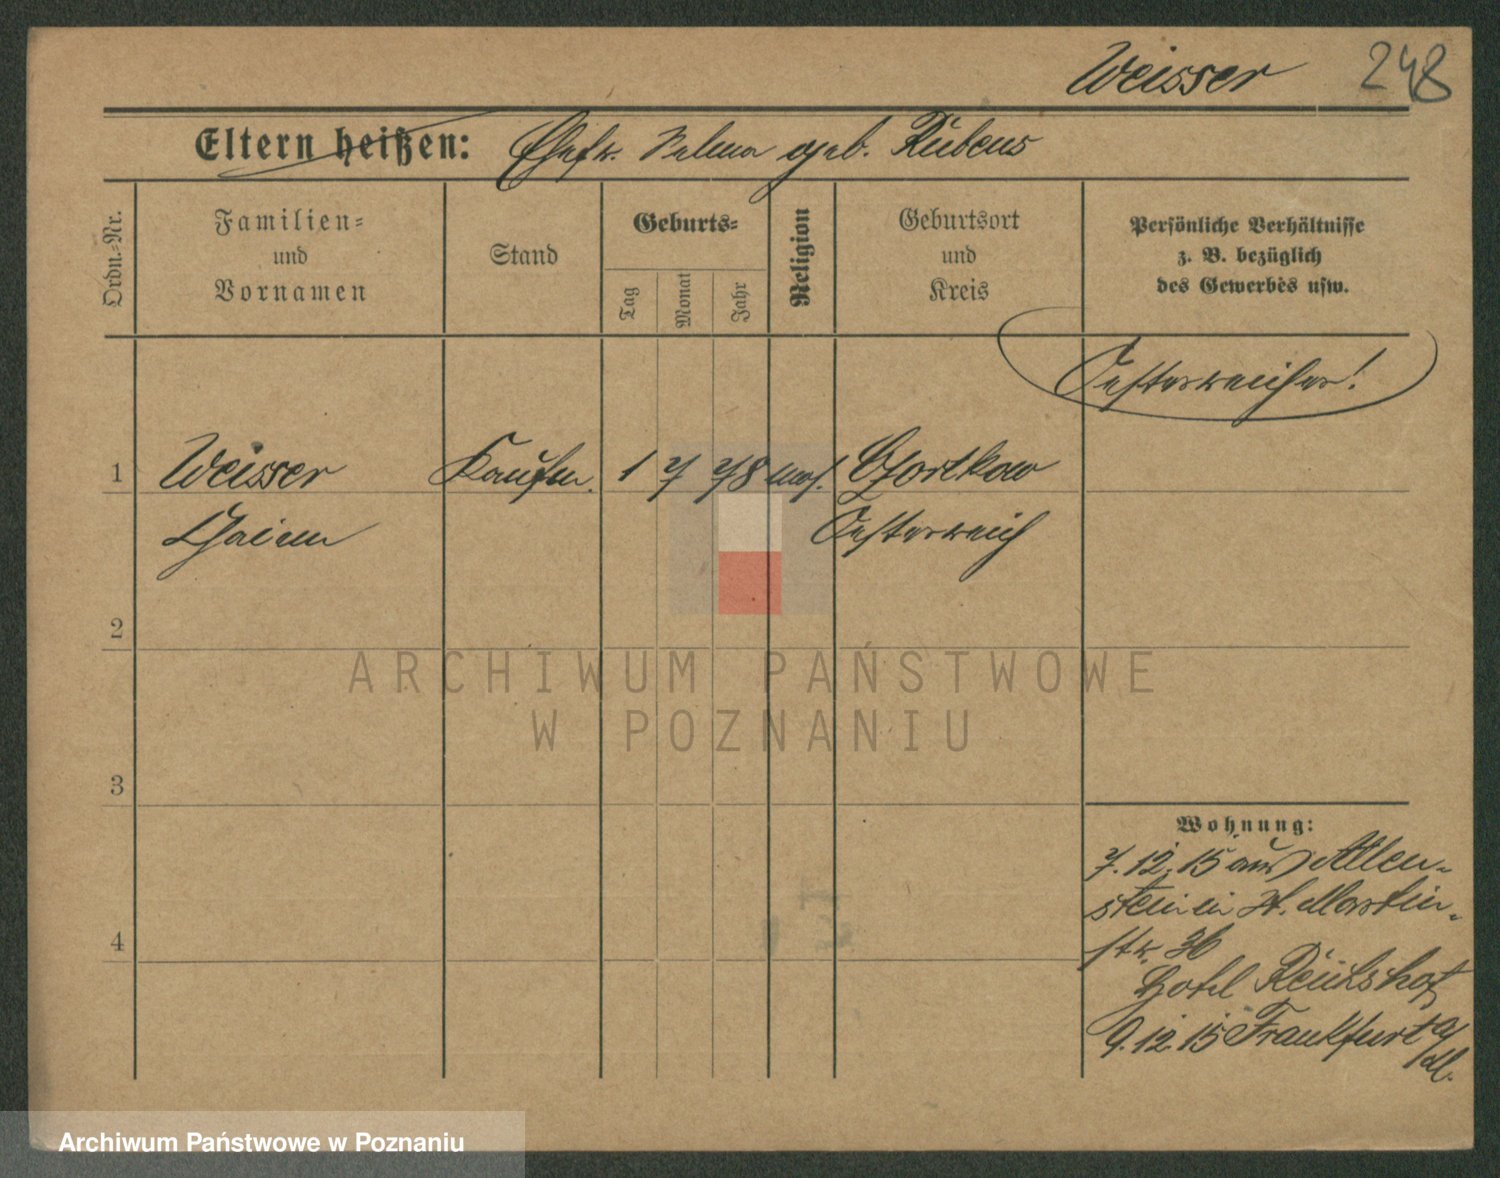 Weisser 248
Eltern heißen: Ehefr. Selma geb. Rubens
Ordn.-Nr.
Familien-
und
Vornamen
Stand
Geburts-
Tag
Monat
Jahr
Religion
Geburtsort
und
Kreis
Persönliche Verhältnisse
z. B. bezüglich
des Gewerbes usw.
Oesterreicher!
1 Weisser Kaufm. 1 7 78 mos. Czortkow
Chaim Oesterreich
2
3
4
Wohnung:
7.12.15 aus Allen-
stein in St. Martin-
str. 36
Hotel Reichshof
9.12.15 Frankfurt a/
M.
ARCHIWUM PAŃSTWOWE
W POZNANIU
Archiwum Państwowe w Poznaniu